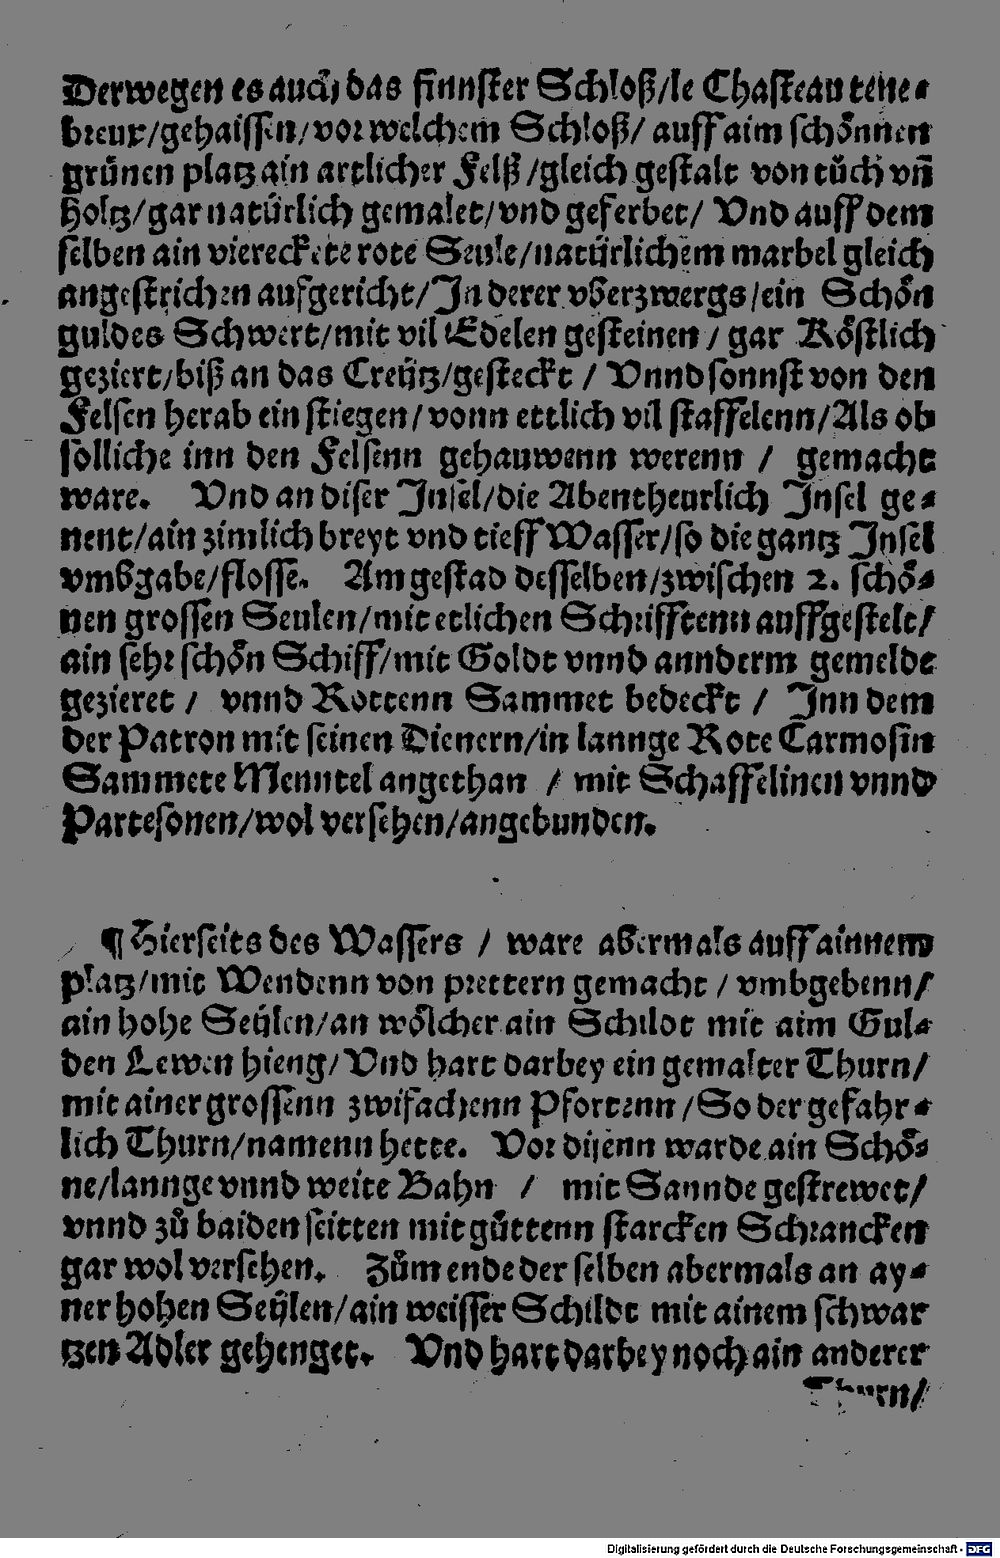 Derwegen es auch das finnster Schloß/le Chasteau tene⸗
breux/gehaissen/vor welchem Schloß/ auff aim schönnen
grünen platz ain artlicher Felß/gleich gestalt von tůch vñ
holtz/gar natürlich gemalet/vnd geferbet/ Vnd auff dem
selben ain viereckete rote Seule/natürlichem marbel gleich
angestrichen aufgericht/In derer vberzwergs/ein Schön
guldes Schwert/mit vil Edelen gesteinen / gar Köstlich
geziert/biß an das Creütz/gesteckt / Vnnd sonnst von den
Felsen herab ein stiegen/vonn ettlich vil staffelenn/Als ob
solliche inn den Felsenn gehauwenn werenn / gemacht
ware. Vnd an diser Insel/die Abentheurlich Insel ge⸗
nent/ain zimlich breyt vnd tieff Wasser/so die gantz Insel
vmbgabe/flosse. Am gestad desselben/zwischen 2. schö⸗
nen grossen Seulen/mit etlichen Schrifftenn auffgestelt/
ain sehr schön Schiff/mit Goldt vnnd annderm gemelde
gezieret / vnnd Rottenn Sammet bedeckt / Inn dem
der Patron mit seinen Dienern/in lannge Rote Carmosin
Sammete Menntel angethan / mit Schaffelinen vnnd
Partesonen/wol versehen/angebunden.
¶ Hierseits des Wassers / ware abermals auff ainnem
platz/mit Wendenn von prettern gemacht / vmbgebenn/
ain hohe Seylen/an wölcher ain Schildt mit aim Gul⸗
den Lewen hieng/Vnd hart darbey ein gemalter Thurn/
mit ainer grossenn zwifachenn Pfortenn/So der gefahr⸗
lich Thurn/namenn hette. Vor disenn warde ain Schö⸗
ne/lannge vnnd weite Bahn / mit Sannde gestrewet/
vnnd zů baiden seitten mit gůttenn starcken Schrancken
gar wol versehen. Zům ende der selben abermals an ay⸗
ner hohen Seylen/ain weisser Schildt mit ainem schwar
tzen Adler gehenget. Vnd hart darbey noch ain anderer
Thurn/
Digitalisierung gefördert durch die Deutsche Forschungsgemeinschaft - DFG